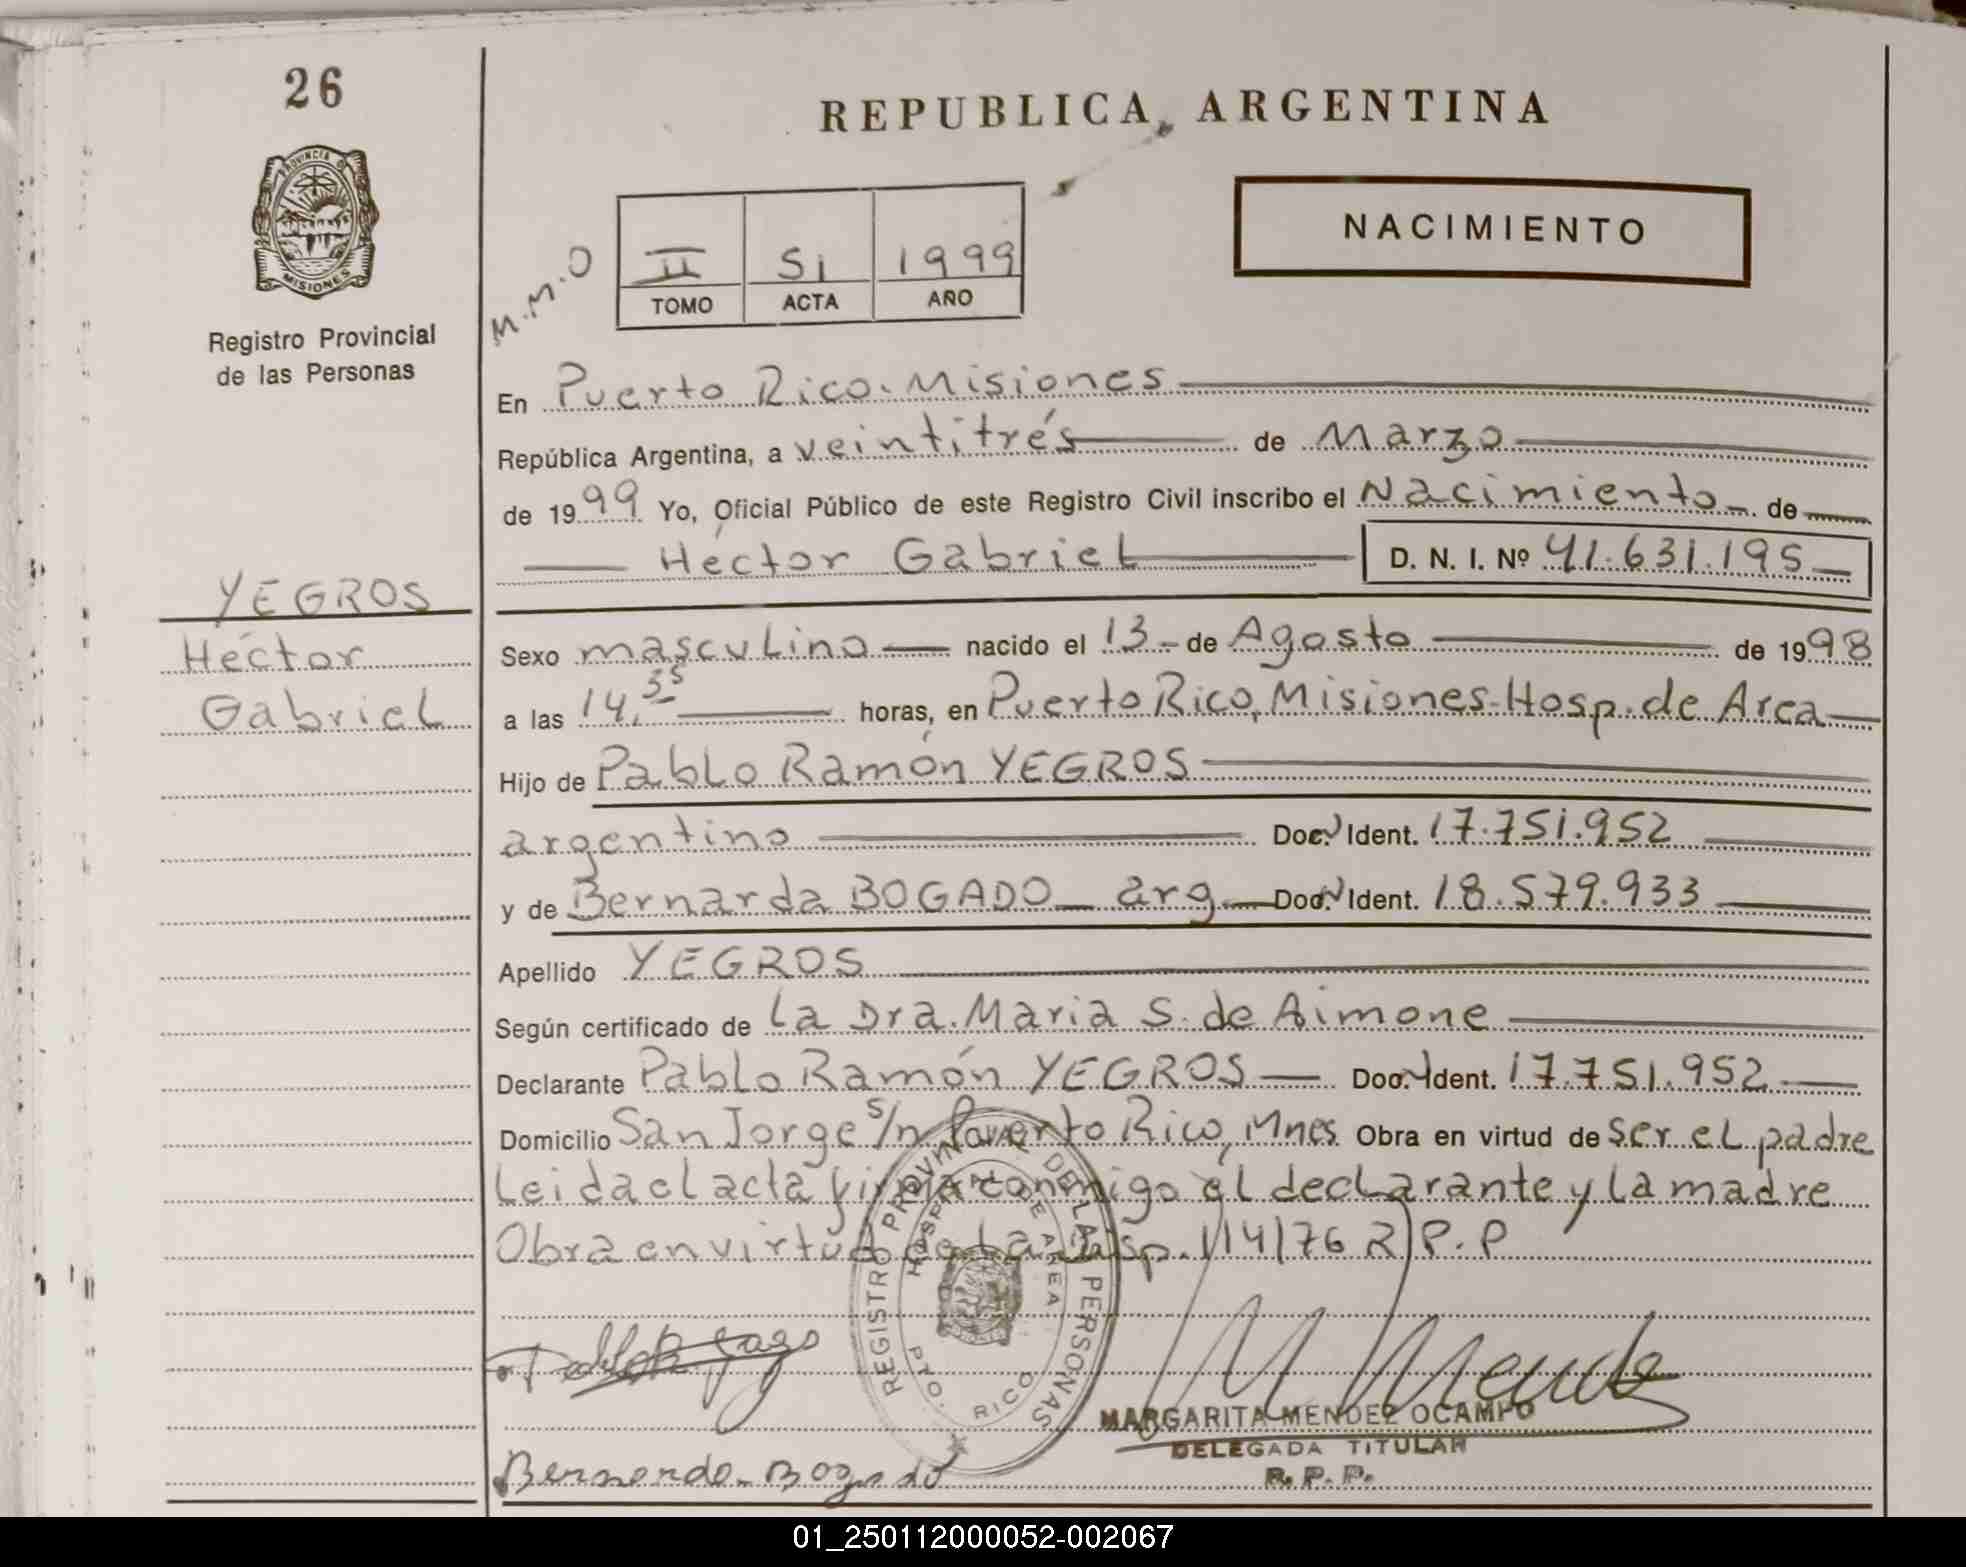 26
PROVINCIA D
MISIONES
Registro Provincial
de las Personas
REPUBLICA ARGENTINA
NACIMIENTO
M.M.O
II 51 1999
TOMO ACTA AÑO
En Puerto Rico. Misiones
República Argentina, a veintitrés de Marzo
de 1999 Yo, Oficial Público de este Registro Civil inscribo el Nacimiento de
Héctor Gabriel D. N. I. Nº 41.631.195
YEGROS
Héctor
Gabriel
Sexo masculino nacido el 13 de Agosto de 1998
a las 14,35 horas, en Puerto Rico, Misiones-Hosp. de Area
Hijo de Pablo Ramón YEGROS
argentino Doc. Ident. 17.751.952
y de Bernarda BOGADO arg Doc. Ident. 18.579.933
Apellido YEGROS
Según certificado de la Dra. Maria S. de Aimone
Declarante Pablo Ramón YEGROS Doc. Ident. 17.751.952
Domicilio San Jorge s/n Puerto Rico, Mnes Obra en virtud de ser el padre
Leida el acta firma conmigo el declarante y la madre
Obra en virtud de la Disp. 114/76 R.P.P
REGISTRO PROVINCIAL DE LAS PERSONAS
HOSPITAL DE AREA
PTO. RICO
M Mende
MARGARITA MENDEZ OCAMPO
DELEGADA TITULAR
R. P. P.
Bernarda Bogado
01_250112000052-002067